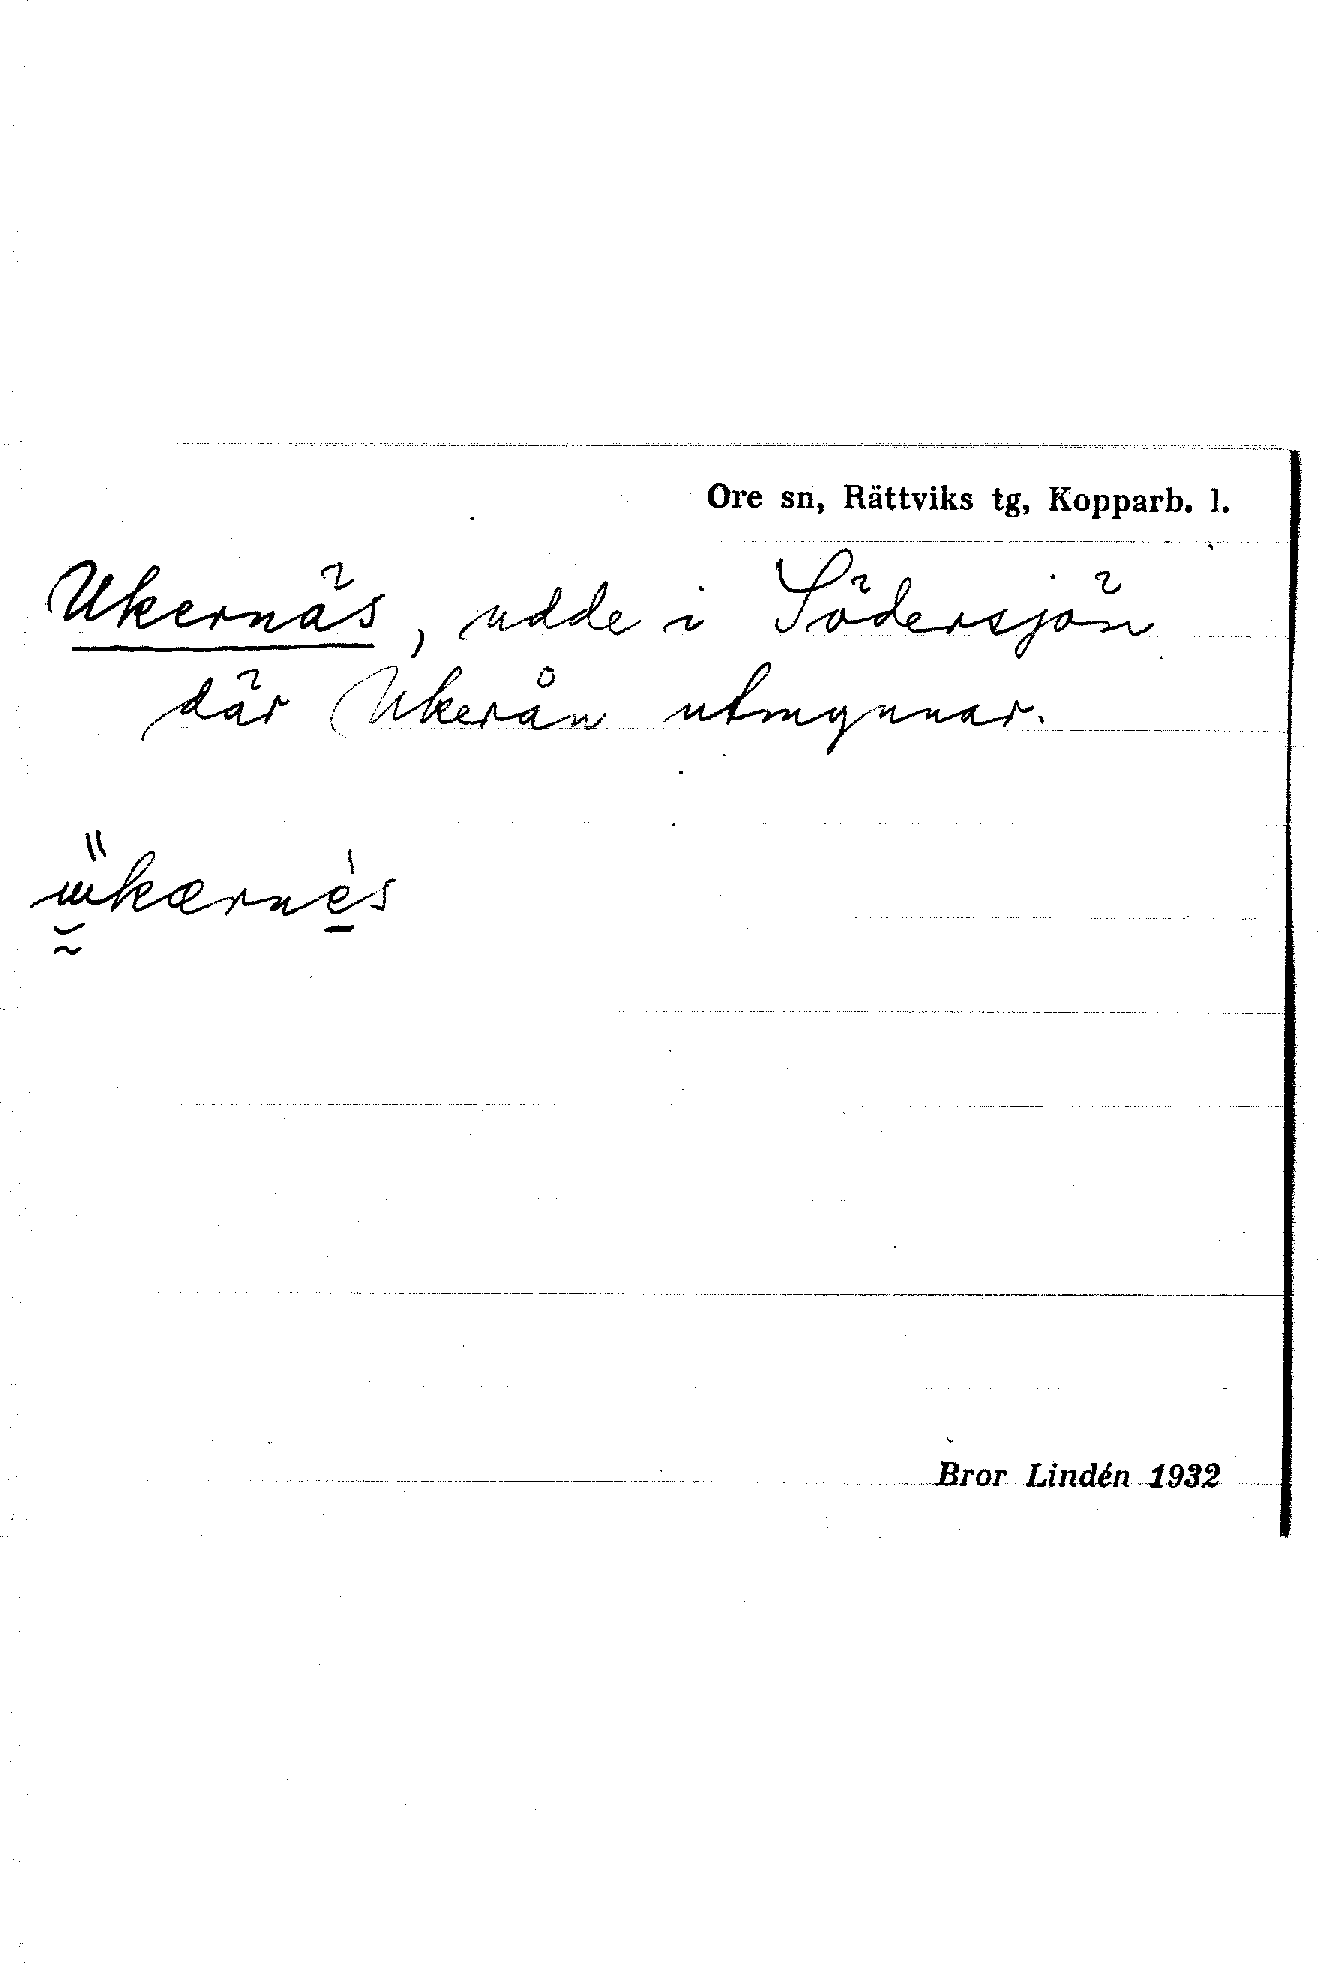 Ore sn, Rättviks tg, Kopparb. l.
Ukernäs, udde i Södersjön
där Ukerån utmynnar.
Bror Lindén 1932